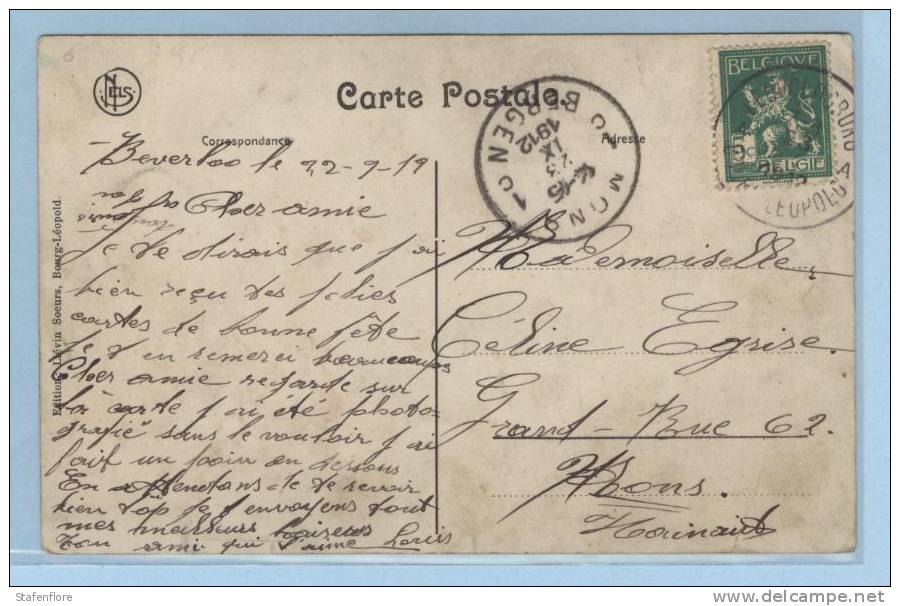 Carte Postale
Correspondance
Adresse
NELS
BELGIQUE
5c
5c
BELGIË
MONS
BERGEN
1912
IX
23
14-15
C 1
LEOPOLD
A
Edition, Liévin Soeurs, Bourg-Léopold.
Beverloo le 22-9-19
Cher amie
Je te dirais que j'ai
bien reçu tes jolies
cartes de bonne fête
je t'en remerci beaucoups
Cher amie regarde sur
la carte j'ai été photo-
grafié sans le vouloir j'ai
fait un poin en dessous
En attendans de te revoir
bien tôp je t'envoyens tout
mes meilleurs baiseus
Ton ami qui t'aime Louis
Mademoiselle,
Céline Egrise.
Grand-Rue 62.
Mons.
Hainaut
Stafenflore
www.delcampe.net